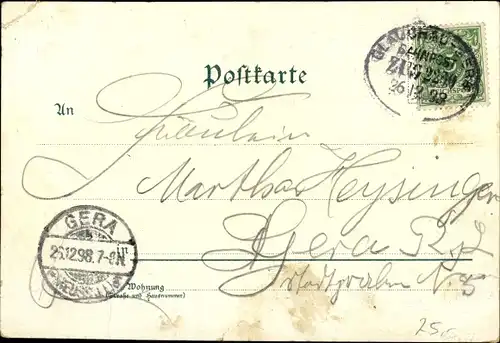 GLAUCHAU - GERA
BAHNPOST
26 12 98
Postkarte
An
Fräulein
Martha Heysinger
GERA
26.12.98. 7-8 N
Gera R.j.L.
Wohnung
(Straße und Hausnummer)
Stadtgraben N. 5
25.-